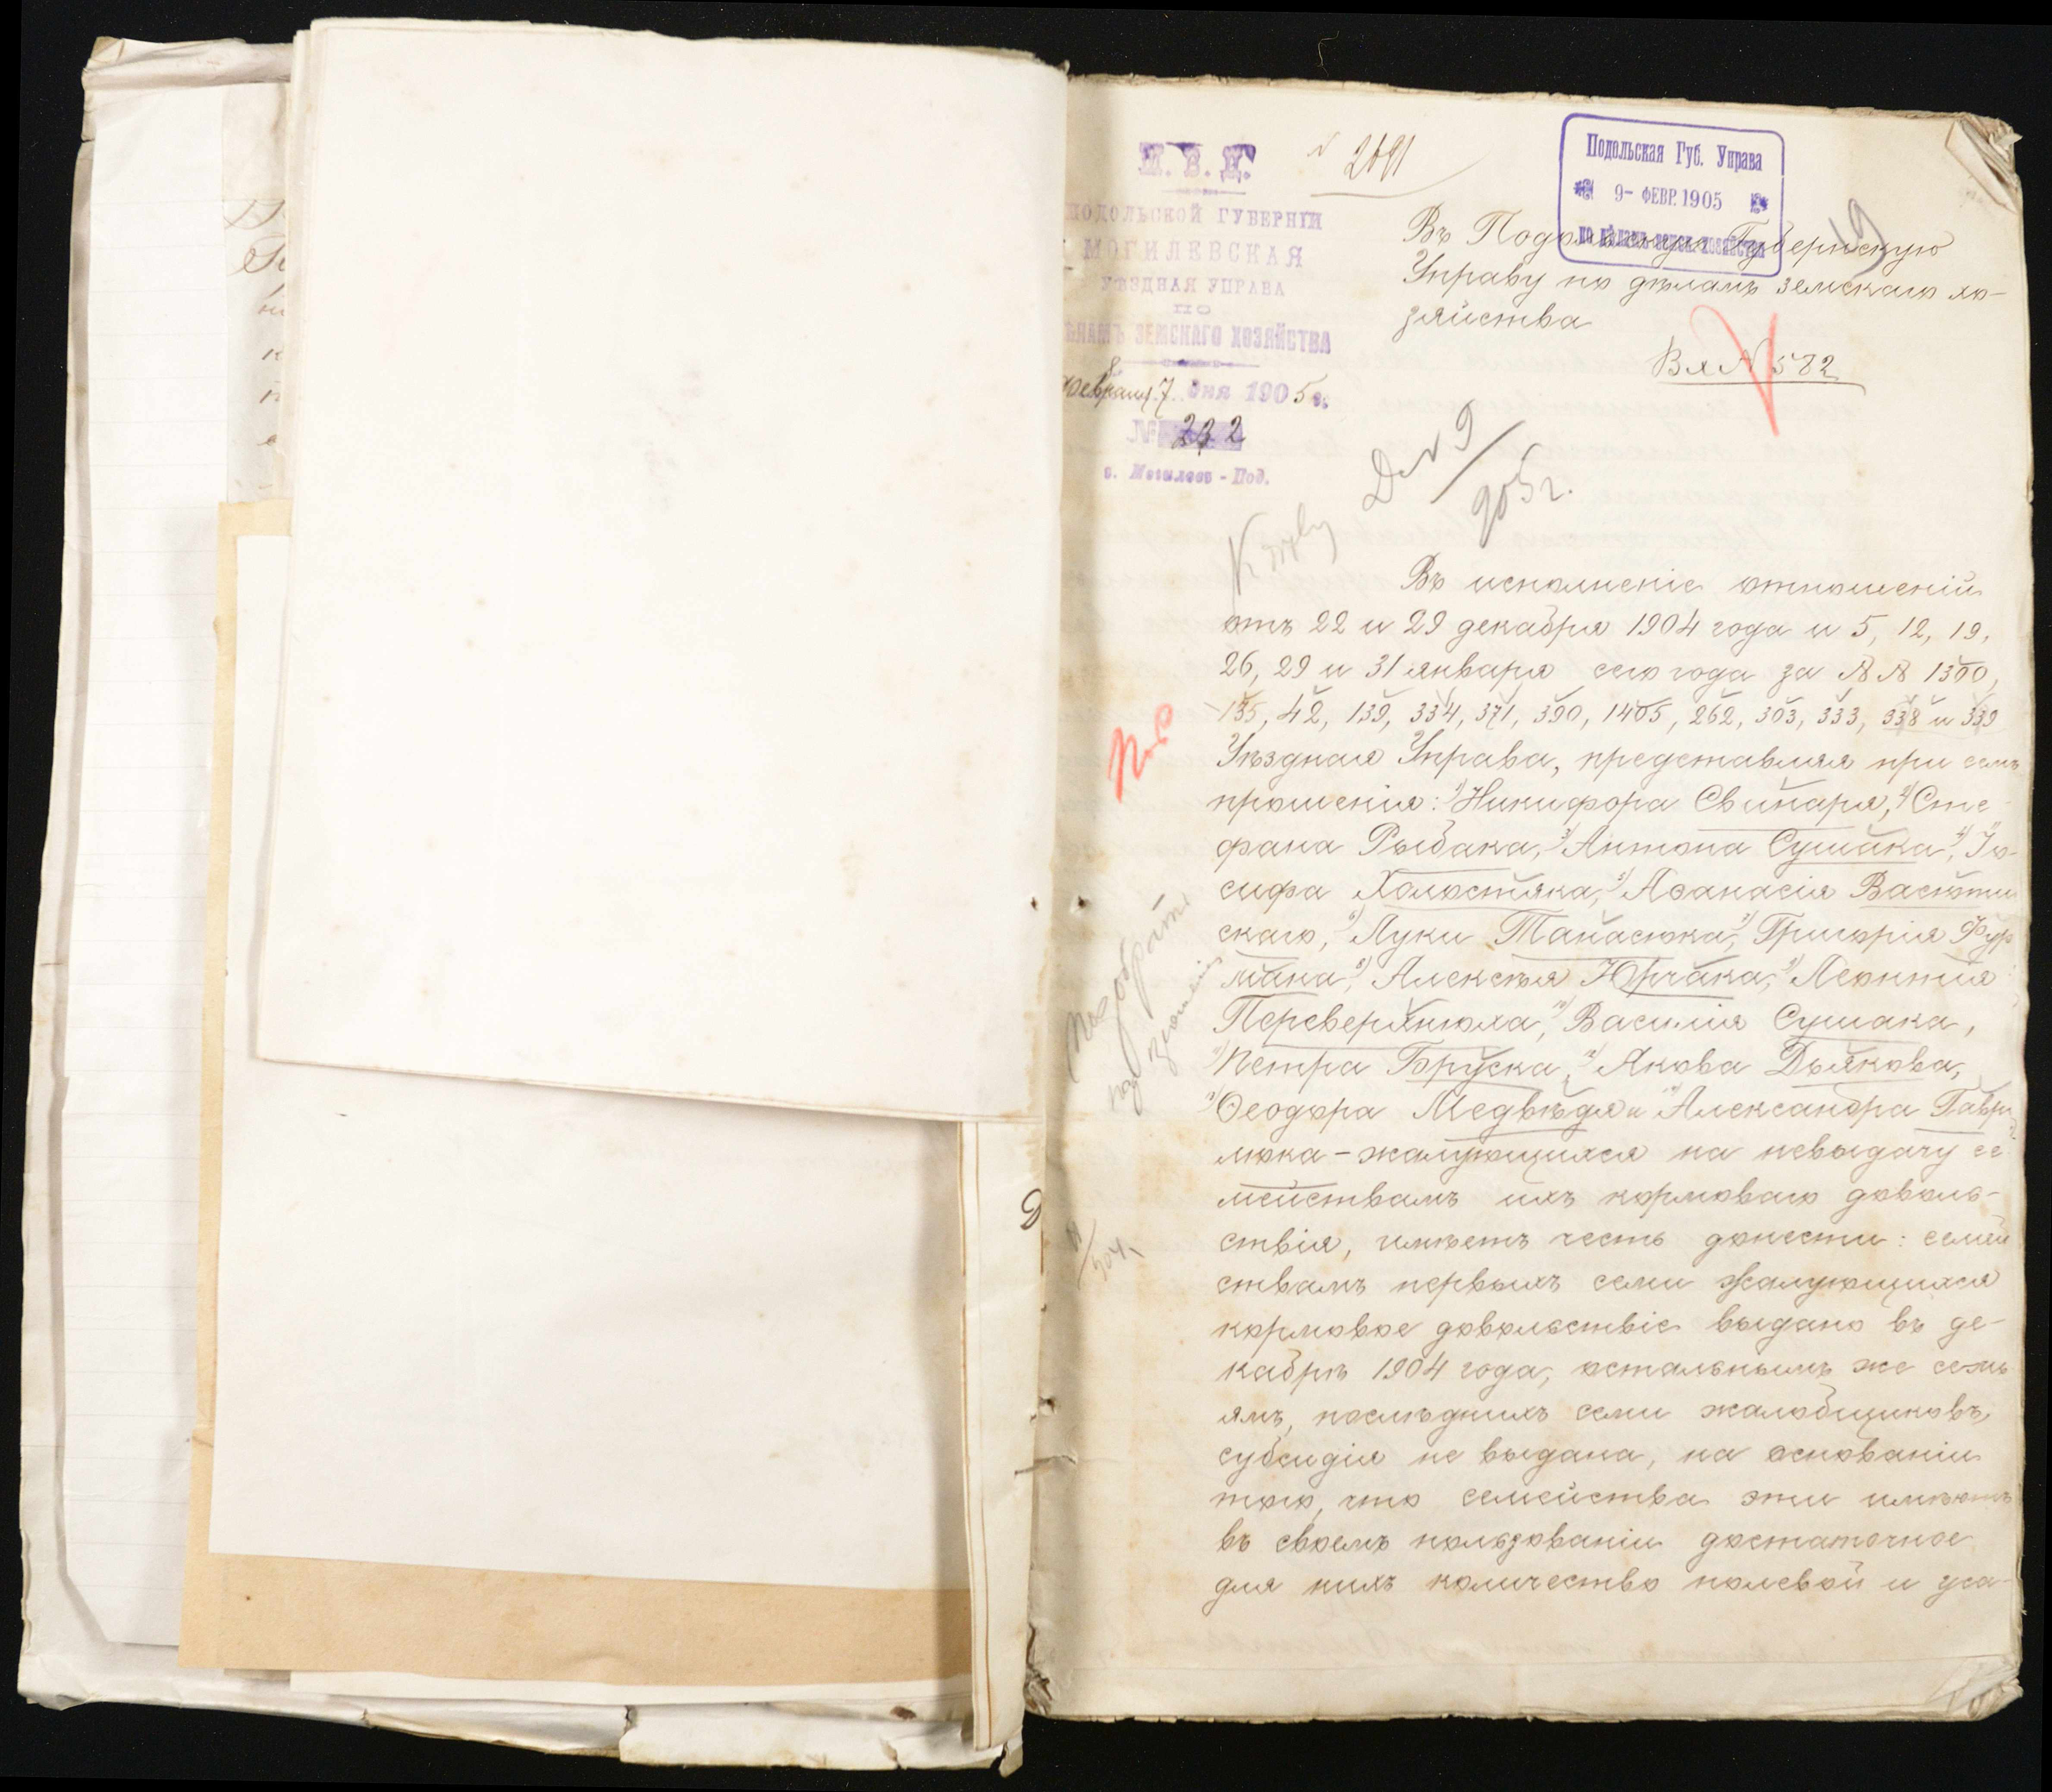 М. В. Д.
№ 2691
ПОДОЛЬСКОЙ ГУБЕРНІИ
МОГИЛЕВСКАЯ
УѢЗДНАЯ УПРАВА
ПО
ДѢЛАМЪ ЗЕМСКАГО ХОЗЯЙСТВА
февраля 7 дня 1905 г.
№ 232
г. Могилевъ-Под.
Подольская Губ. Управа
9- ФЕВР. 1905
по дѣламъ земск. хозяйства
19
Въ Подольскую Губернскую
Управу по дѣламъ земскаго хо-
зяйства
Вх № 582
Д. № 9
905 г.
Въ исполненіе отношеній
отъ 22 и 29 декабря 1904 года и 5, 12, 19,
26, 29 и 31 января сего года за №№ 1300,
135, 42, 139, 334, 371, 390, 1405, 262, 303, 333, 338 и 339
Уѣздная Управа, представляя при семъ
прошенія: 1) Никифора Свинаря, 2) Сте
фана Рыбака, 3) Антона Сушака, 4) Іо-
сифа Холостяка, 5) Аѳанасія Васют
скаго, 6) Луки Танасюка, 7) Григорія Фур
мана, 8) Алексѣя Юрчака, 9) Леонтія
Переверхнюха, 10) Василія Сушака,
11) Петра Боруска, 12) Якова Дьякова,
13) Ѳеодора Медвѣдя и 14) Александра Гаври
люка - жалующихся на невыдачу се
мействамъ ихъ кормоваго доволь-
ствія, имѣетъ честь донести: семей
ствамъ первыхъ семи жалующихся
кормовое довольствіе выдано въ де-
кабрѣ 1904 года, остальнымъ же семь
ямъ, послѣднихъ семи жалобщиковъ,
субсидія не выдана, на основаніи
того, что семейства эти имѣютъ
въ своемъ пользованіи достаточное
для нихъ количество полевой и уса-